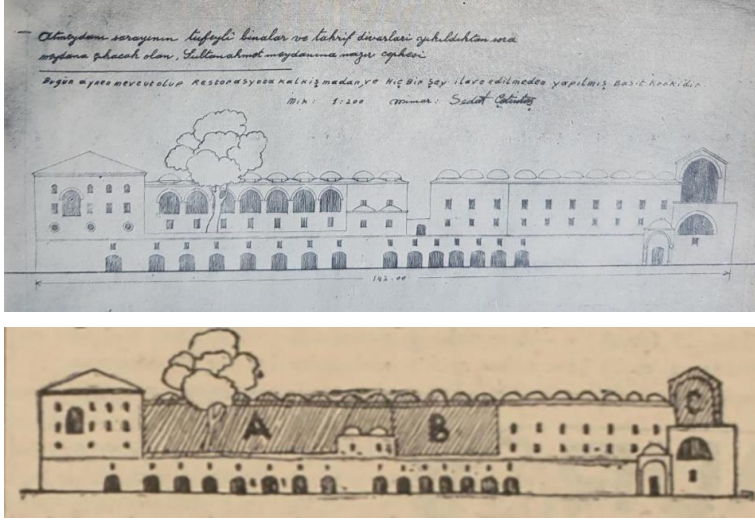 Atmeydanı sarayının tufeyli binalar ve tahrif divarları yıkıldıktan sora
meydana çıkacak olan, Sultanahmet meydanına nazır cephesi
Bugün aynen mevcut olup Restorasyona kalkışmadan, ve Hiç Bir Şey ilave edilmeden yapılmış Basit krokidir
Mik: 1:200 Mimar: Sedat Çetintaş
142.00
A
B
C